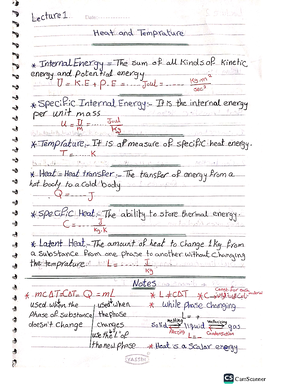 Lecture 1
Heat and Temprature
* Internal Energy = The sum of all Kinds of Kinetic
energy and potential energy
U = K.E + P.E = .... Joul = ...... kg.m²/sec²
* Specific Internal Energy:- It is the internal energy
per unit mass
u = U/m = ...... Joul/kg
* Temprature:- It is a measure of specific heat energy.
T = ..... K
* Heat = Heat transfer:- The tansfer of energy from a
hot body to a cold body
Q = ..... J
* specific Heat:- The ability to store thermal energy.
C = ...... J/kg.K
* Latent Heat:- The amount of heat to change 1 kg from
a substance from one phase to another without changing
the temprature L = ...... J/kg
Notes
* mCΔT = CΔT
used when the
Phase of substance
doesn't Change
Q = mL
used when
the phase
changes
use the L of
the new phase
* L ≠ CΔT
* while phase Changing
L = +
solid liquid gas
L = -
* Heat is a Scalar energy
CS CamScanner